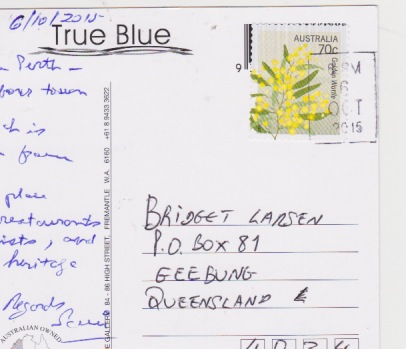 6/10/2015
True Blue
Perth -
town
is
place
restaurants
, and
heritage
Regards
AUSTRALIAN OWNED
84 - 86 HIGH STREET, FREMANTLE W.A. 6160 +61 8 9433 3622
AUSTRALIA
70c
Golden Wattle
9
PM
OCT
2015
BRIDGET LARSEN
P.O. BOX 81
GEEBUNG
QUEENSLAND
4034